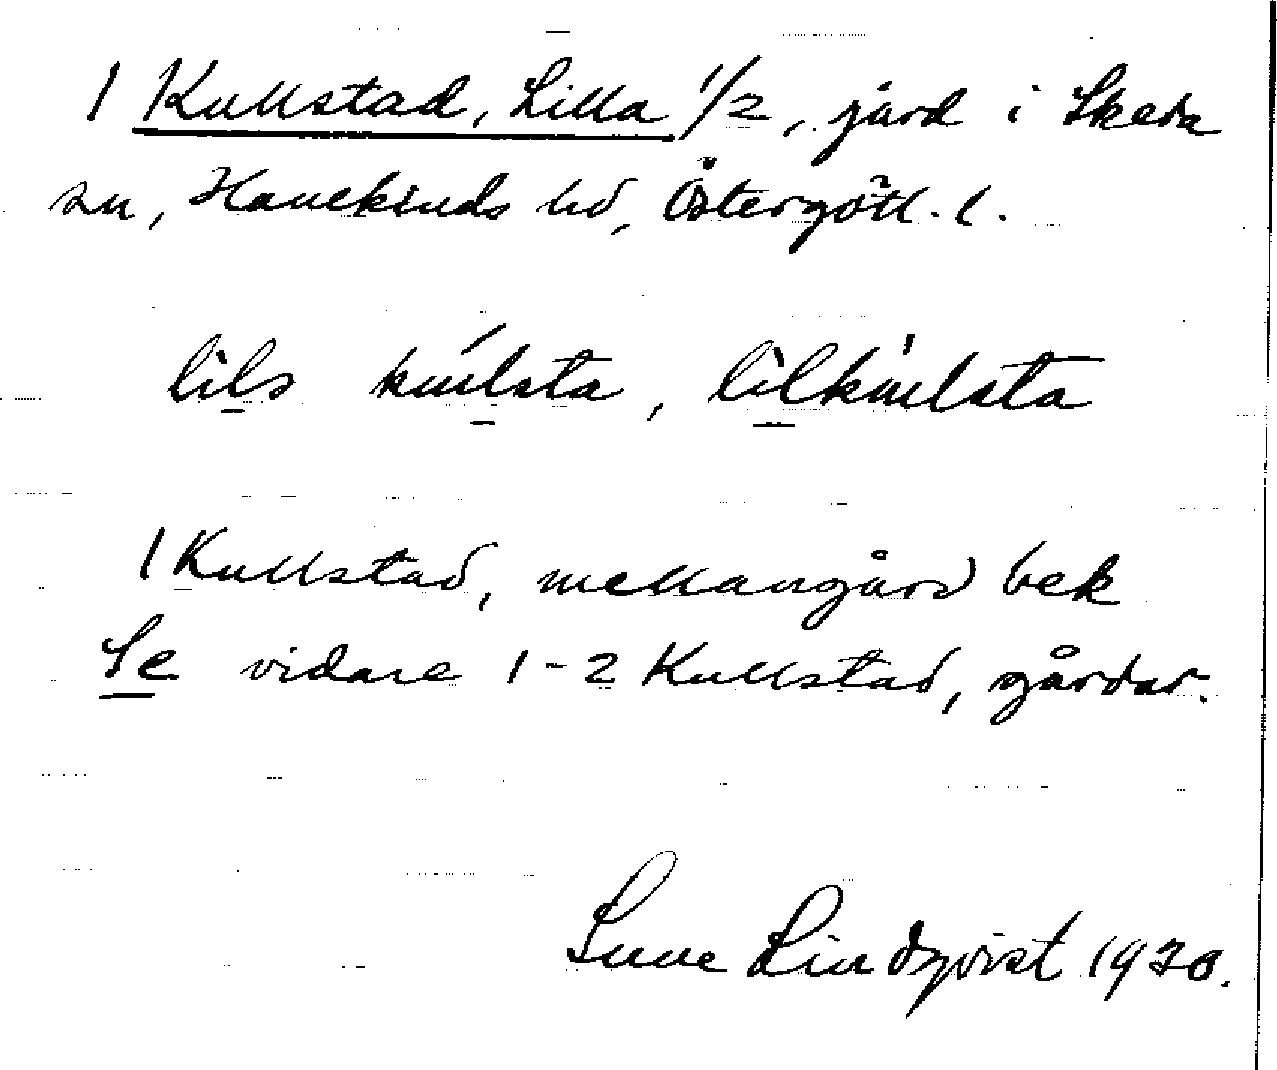 1 Kullstad, Lilla 1/2, jård i Skeda
sn, Hanekinds hd, Östergötl. l.
lìls kúlsta, lìlkúlsta
1 Kullstad, mellangård bek
Se vidare 1-2 Kullstad, gårdar.
Sune Lindqvist 1930.